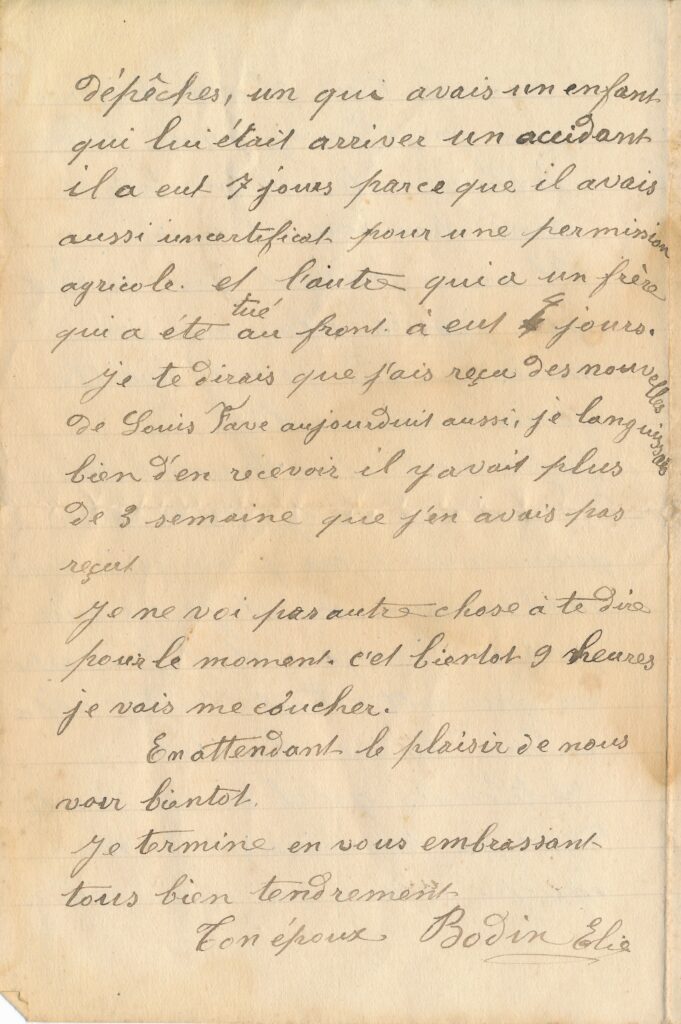 dépêches, un qui avais un enfant
qui lui était arriver un accidant
il a eut 7 jours parce que il avais
aussi un certificat pour une permission
agricole. et l'autre qui a un frère
qui a été tué au front. à eut 4 jours.
Je te dirais que j'ais reçu des nouvelles
de Louis Fave aujourduit aussi, je languissais
bien d'en recevoir il y avait plus
de 3 semaine que j'en avais pas
reçut
Je ne voi pas autre chose à te dire
pour le moment. c'et bientot 9 heures
je vais me coucher.
En attendant le plaisir de nous
voir bientot.
Je termine en vous embrassant
tous bien tendrement
Ton époux Bodin Elie